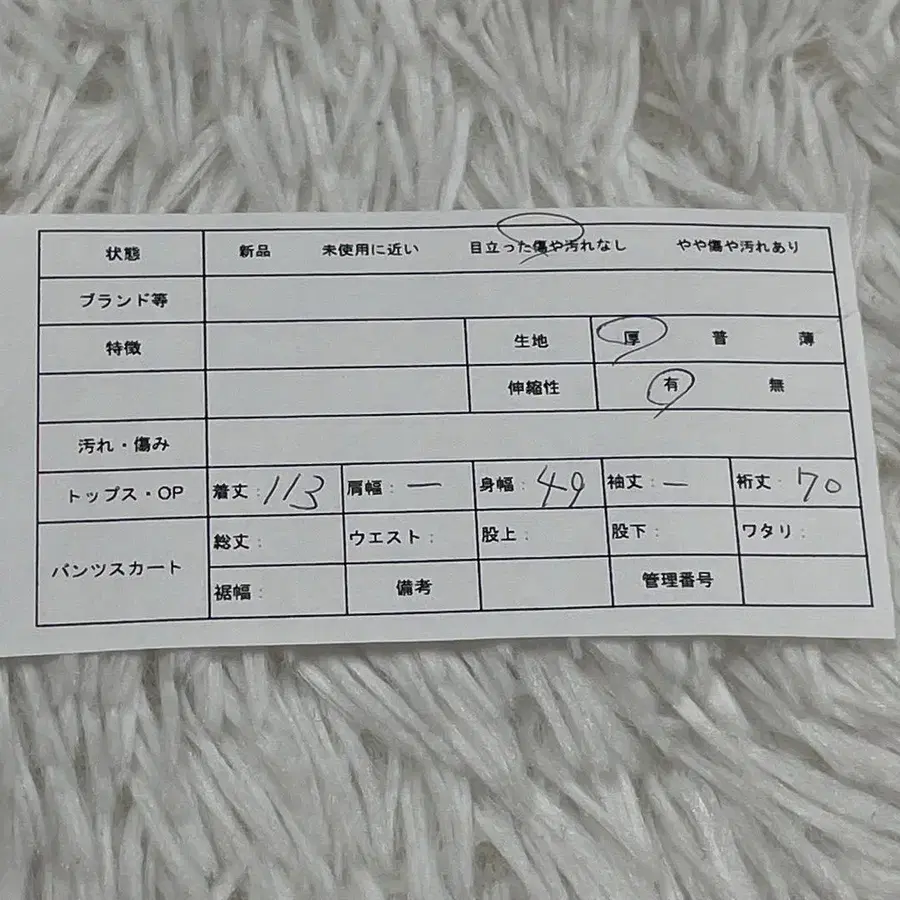 状態 新品 未使用に近い 目立った傷や汚れなし やや傷や汚れあり
ブランド等
特徴 生地 厚 普 薄
伸縮性 有 無
汚れ・傷み
トップス・OP 着丈：113 肩幅：― 身幅：49 袖丈：― 裄丈：70
パンツスカート
総丈： ウエスト： 股上： 股下： ワタリ：
裾幅： 備考 管理番号